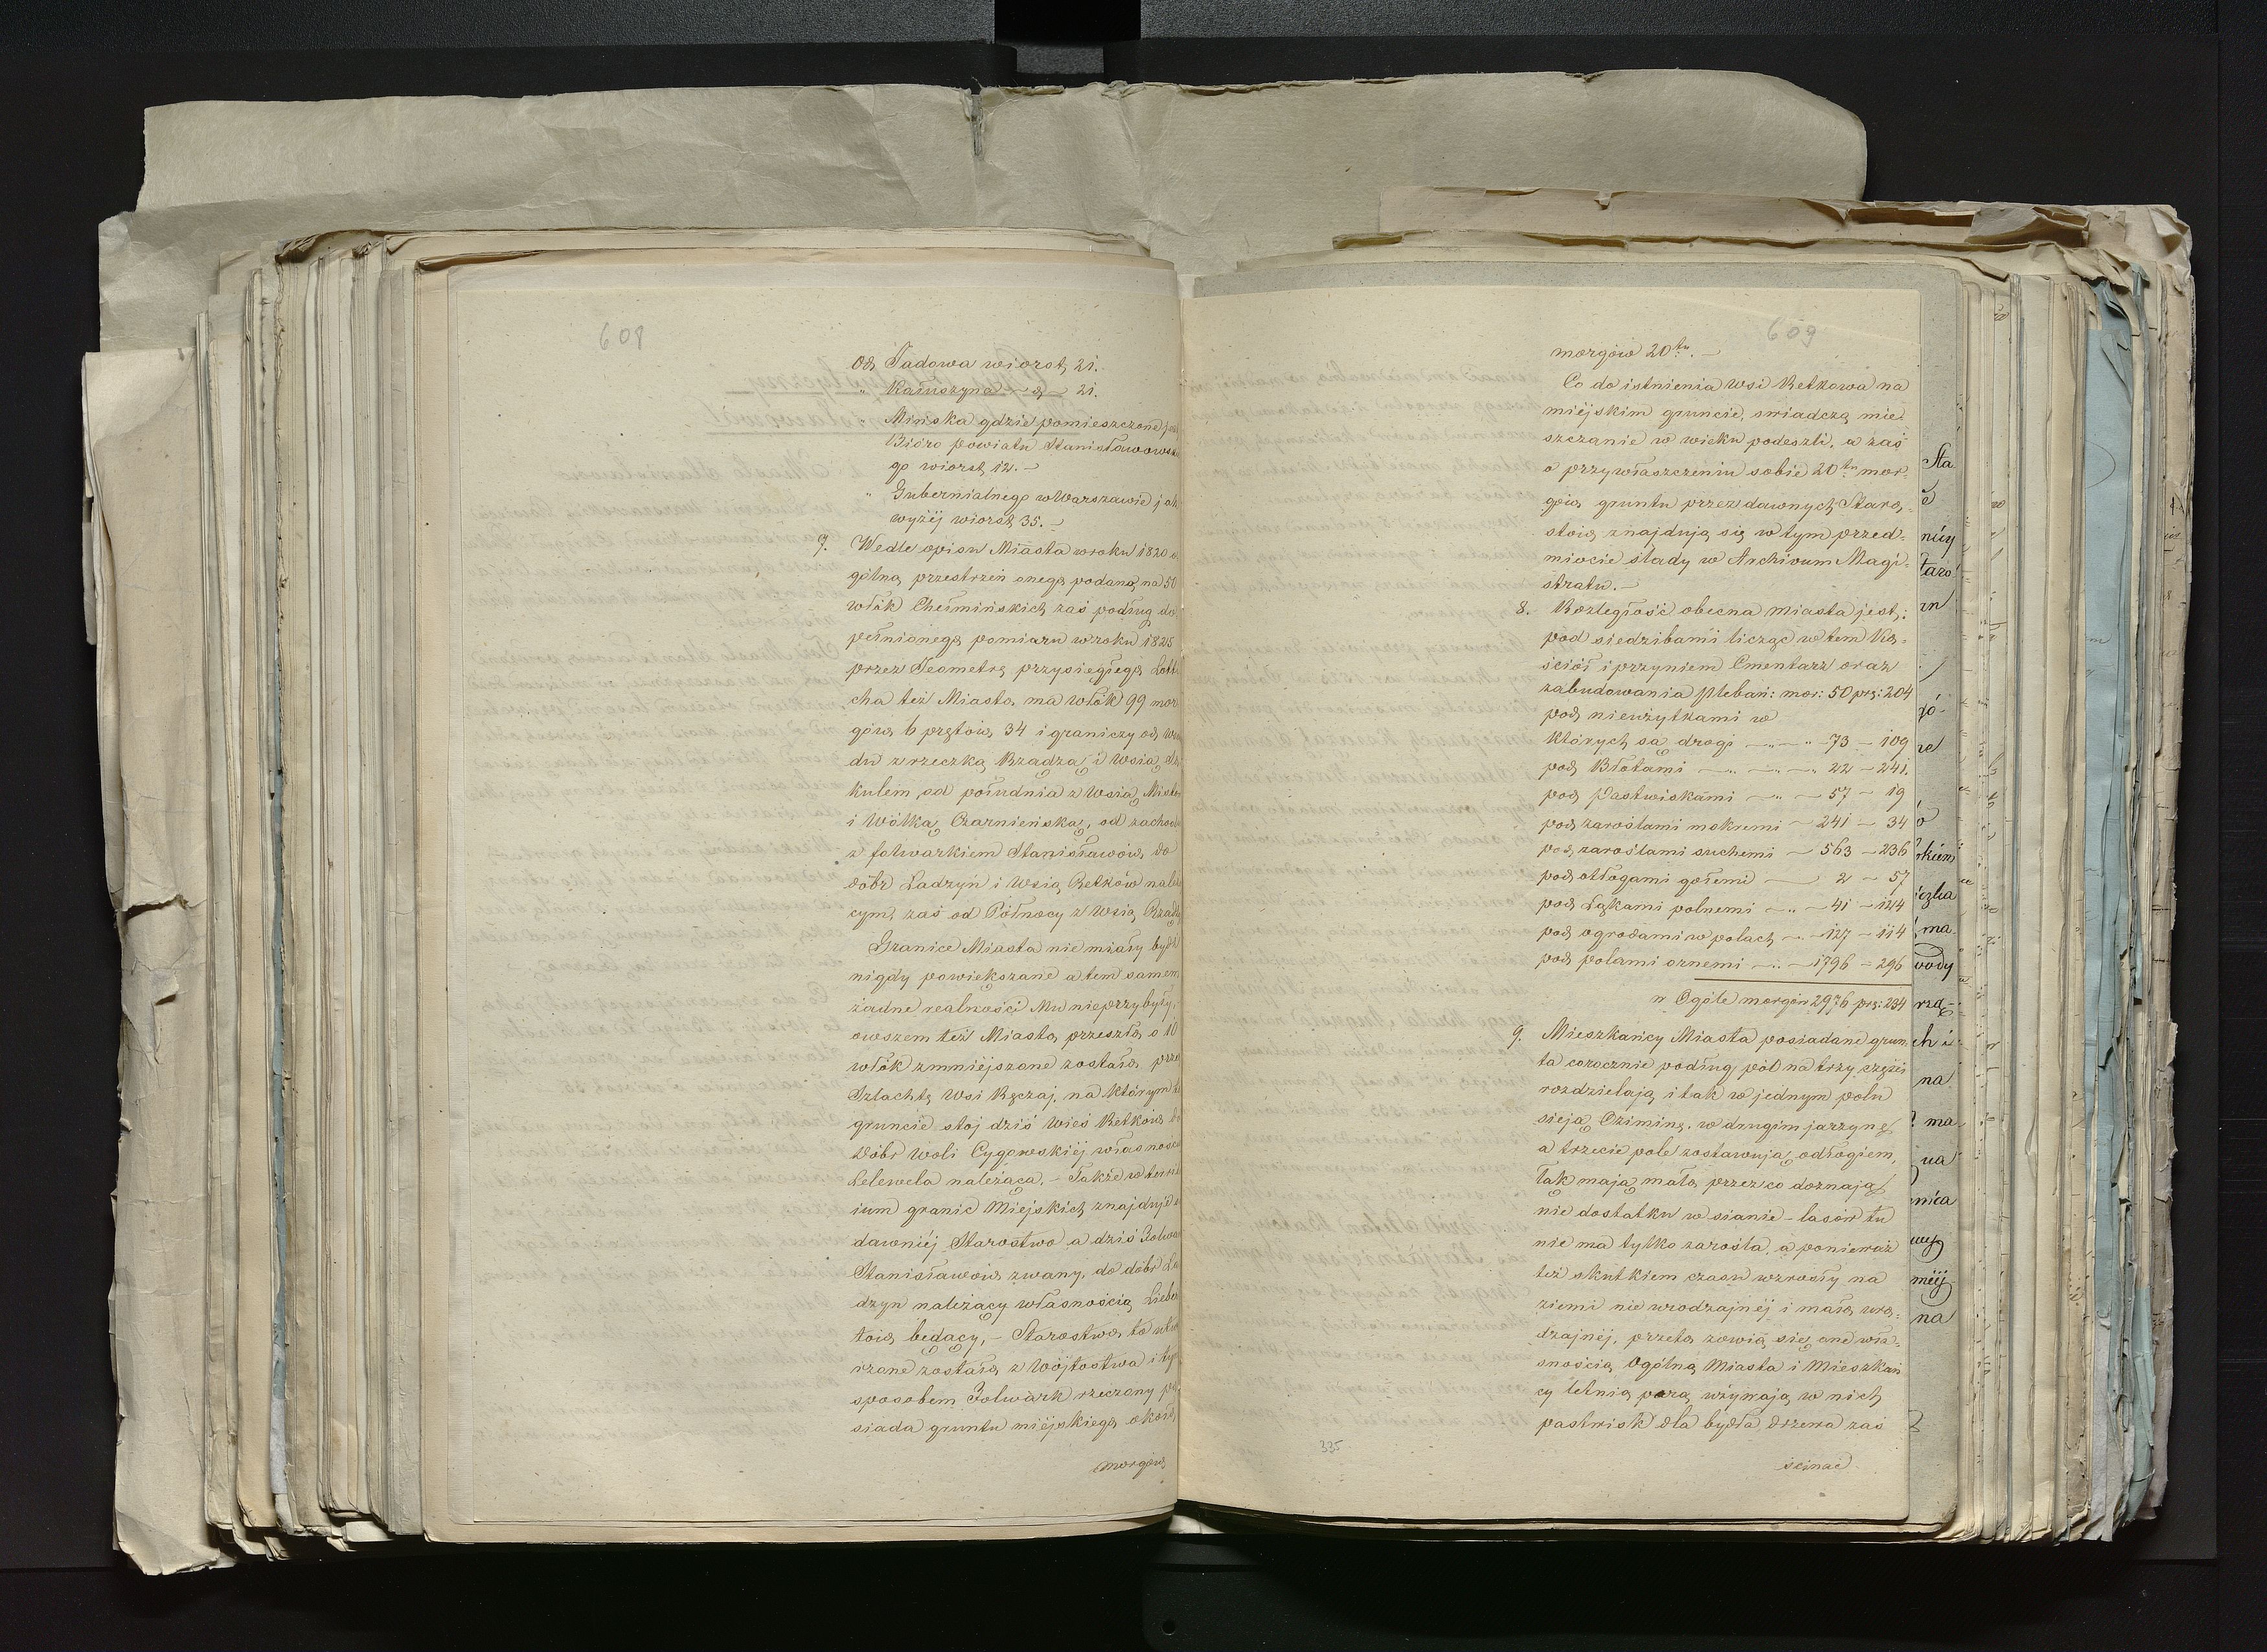 608
od Jadowa wiorst 21.
" Kałuszyna — " — 21.
" Mińska gdzie pomieszczone jest
Bióro powiatu Stanisławowskie
go wiorst 12. —
" Gubernialnego w Warszawie jak
wyżéj wiorst 35. —
7. Wedle opisu Miasta w roku 1820 o
gólną przestrzeń onego podano na 50
włók Chełmińskich zaś podług do
pełnionego pomiaru w roku 1825
przez Jeometrę przysięgłego
cha też Miasto, ma włók 99 mor
gów 6 prętów 34 i graniczy od
du z rzeczką Rządzą i Wsią
kulem, od południa z Wsią
i Wólką Czarnieńską, od zachodu
z folwarkiem Stanisławów, do
dóbr Ładzyń i Wsią Retków należą
cym, zaś od Północy z Wsią
Granice Miasta nie miały być
nigdy powiększane a tem samem
żadne realności Mu nieprzybyły,
owszem też Miasto, przeszło o 10
włók zmniéjszone zostało przez
Szlachtę Wsi Ręczaj, na którym to
gruncie stoj dziś Wieś Retków do
Dóbr Woli Cygowskiéj własnością
Lelewela należąca. — Także w
ium granic Miejskich znajduje
dawniéj Starostwo a dziś Folwark
Stanisławów zwany, do dóbr Ła
dzyn należący własnością
tóia będący, — Starostwo to utwo
rzone zostało z Wójtostwa i tym
sposobem Folwark rzeczony po
siada gruntu miéjskiego około
morgów
609
morgów 20tu. —
Co do istnienia wsi Retkowa na
miéjskim gruncie, swiadczą mie-
szczanie w wieku podeszli, a zaś
o przywłaszczeniu sobie 20tu mor-
gów gruntu przez dawnych Staro-
stów znajdują się w tym przed-
miocie slady w Archivum Magi-
stratu. —
8. Rozległość obecna miasta jest:
pod siedzibami licząc w tem Ko-
ściół i przyniem Cmentarz oraz
zabudowania plebań: mor: 50 prę: 204
pod nieużytkami w
których są drogi — " — " — 73 — 109
pod Błotami — " — " — 22 — 241.
pod Pastwiskami — " — 57 — 19
pod zaroślami mokremi — 241 — 34
pod zaroślami suchemi — 563 — 236
pod odłogami gołemi — 2 — 57
pod Łąkami polnemi — " — 41 — 124
pod ogrodami w polach — " — 127 — 114
pod polami ornemi — " — 1796 — 296
w Ogóle morgów 2976 prę: 234
9. Mieszkańcy Miasta posiadane grun
ta corocznie podług pól na trzy części
rozdzielają i tak w jednym polu
sieją Oziminę, w drugim jarzynę
a trzecie pole zostawują odłogiem,
łąk mają mało, przez co doznają
nie dostatku w sianie — lasów tu
nie ma tylko zarośla, a ponieważ
też skutkiem czasu wzrosły na
ziemi nie urodzajnéj i mało uro-
dzajnéj, przeto zowią się one wła-
snością Ogólną Miasta i Mieszkań
cy letnią porą używają w nich
pastwisk dla bydła, drzewa zaś
ścinać
335